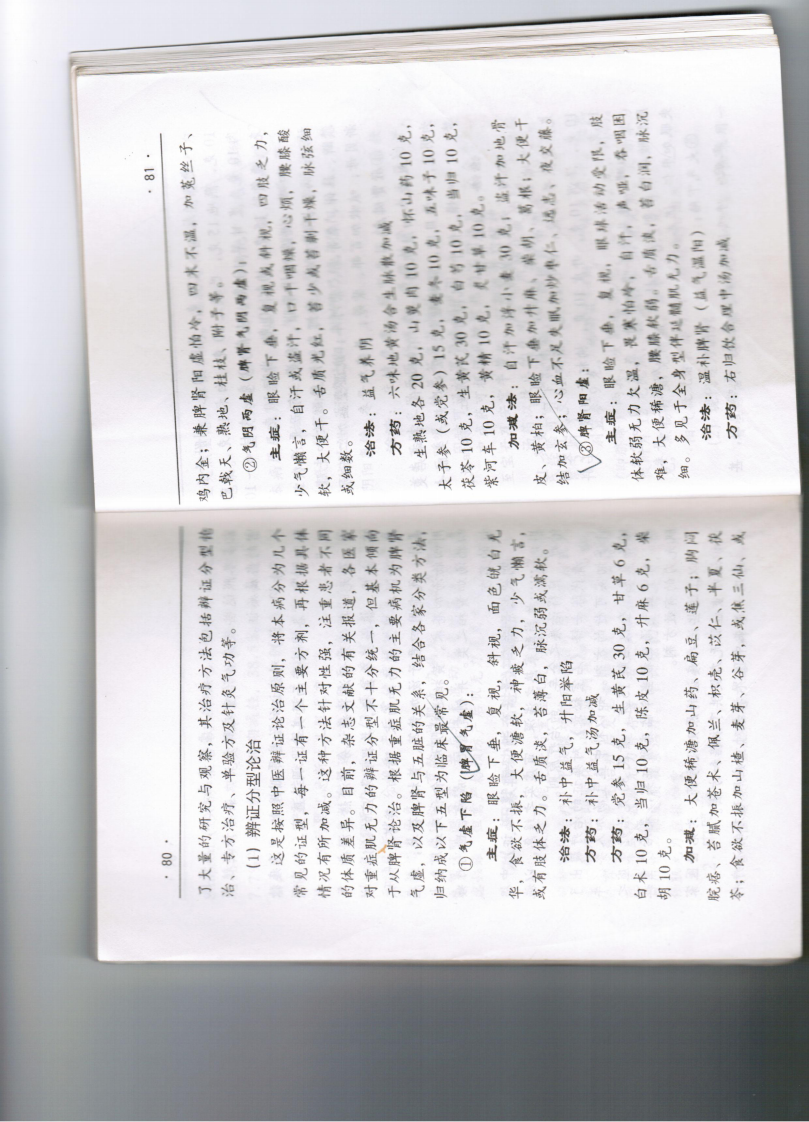 · 80 ·
了大量的研究与观察，其治疗方法也包括辨证分型论
治、专方治疗、单验方及针灸气功等。
(1) 辨证分型论治
这是按照中医辨证论治原则，将本病分为几个
常见的证型，每一证有一个主要方剂，再根据具体
情况有所加减。这种方法针对性强，注重患者不同
的体质差异。目前，杂志文献的有关报道，各医家
对重症肌无力的辨证分型不十分统一，但基本倾向
于从脾肾论治。根据重症肌无力的主要病机为脾肾
气虚，以及脾肾与五脏的关系，结合各家分类方法，
归纳成以下五型为临床最常见。
①气虚下陷（脾胃气虚）：
主症：眼睑下垂，复视，斜视，面色㿠白无
华，食欲不振，大便溏软，神疲乏力，少气懒言，
或有肢体乏力。舌质淡，苔薄白，脉沉弱或濡软。
治法：补中益气，升阳举陷
方药：补中益气汤加减
方药：党参 15 克，生黄芪 30 克，甘草 6 克，
白术 10 克，当归 10 克，陈皮 10 克，升麻 6 克，柴
胡 10 克。
加减：大便稀溏加山药、扁豆、莲子；胸闷
脘痞、苔腻加苍术、佩兰、枳壳、苡仁、半夏、茯
苓；食欲不振加山楂、麦芽、谷芽，或焦三仙、或
· 81 ·
鸡内金；兼脾肾阳虚怕冷，四末不温，加菟丝子、
巴戟天、熟地、桂枝、附子等。
②气阴两虚（脾肾气阴两虚）：
主症：眼睑下垂，复视或斜视，四肢乏力，
少气懒言，自汗或盗汗，口干咽燥，心烦，腰膝酸
软，大便干。舌质光红，苔少或苔剥干燥，脉弦细
或细数。
治法：益气养阴
方药：六味地黄汤合生脉散加减
生熟地各 20 克，山萸肉 10 克，怀山药 10 克，
太子参（或党参）15 克，麦冬 10 克，五味子 10 克，
茯苓 10 克，生黄芪 30 克，白芍 10 克，当归 10 克，
紫河车 10 克，黄精 10 克，炙甘草 10 克。
加减法：自汗加浮小麦 30 克；盗汗加地骨
皮、黄柏；眼睑下垂加升麻、柴胡、葛根；大便干
结加玄参；心血不足失眠加炒枣仁、远志、夜交藤。
③脾肾阳虚：
主症：眼睑下垂，复视，眼球活动受限，肢
体软弱无力欠温，畏寒怕冷，自汗，声哑，吞咽困
难，大便稀溏，腰膝软弱。舌质淡，苔白润，脉沉
细。多见于全身型伴延髓肌无力。
治法：温补脾肾（益气温阳）
方药：右归饮合理中汤加减